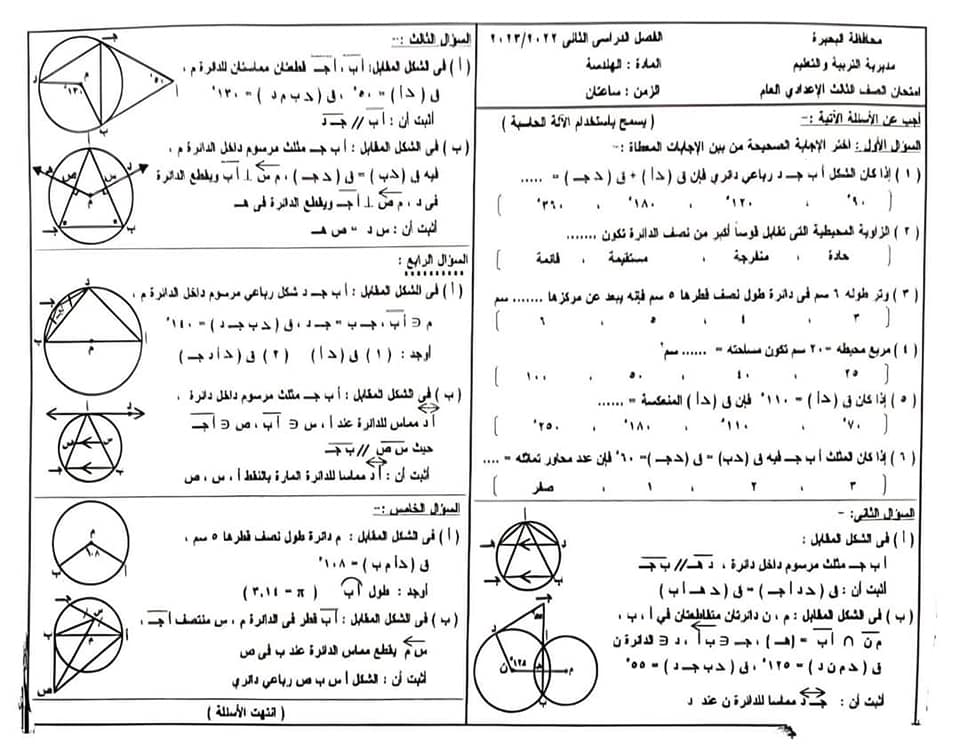 محافظة البحيرة
مديرية التربية والتعليم
امتحان الصف الثالث الإعدادي العام
الفصل الدراسى الثانى ٢٠٢٣/٢٠٢٢
المادة : الهندسة
الزمن : ساعتان
أجب عن الأسئلة الآتية :-  ( يسمح باستخدام الآلة الحاسبة )
السؤال الأول : اختر الإجابة الصحيحة من بين الإجابات المعطاة :-
( ١ ) إذا كان الشكل أ ب جـ د رباعي دائري فإن ق ( د أ ) + ق ( د جـ ) = .....
[ ٩٠° ، ١٢٠° ، ١٨٠° ، ٣٦٠° ]
( ٢ ) الزاوية المحيطية التى تقابل قوساً أكبر من نصف الدائرة تكون .......
[ حادة ، منفرجة ، مستقيمة ، قائمة ]
( ٣ ) وتر طوله ٦ سم فى دائرة طول نصف قطرها ٥ سم فإنه يبعد عن مركزها ....... سم
[ ٣ ، ٤ ، ٥ ، ٦ ]
( ٤ ) مربع محيطه = ٢٠ سم تكون مساحته = ...... سم²
[ ٢٥ ، ٤٠ ، ٥٠ ، ١٠٠ ]
( ٥ ) إذا كان ق ( د أ ) = ١١٠° فإن ق ( د أ ) المنعكسة = ......
[ ٧٠° ، ١١٠° ، ١٨٠° ، ٢٥٠° ]
( ٦ ) إذا كان المثلث أ ب جـ فيه ق ( د ب ) = ق ( د جـ ) = ٦٠° فإن عدد محاور تماثله = ....
[ ٣ ، ٢ ، ١ ، صفر ]
السؤال الثانى: -
( أ ) فى الشكل المقابل :
أ ب جـ مثلث مرسوم داخل دائرة ، د هـ // ب جـ
أثبت أن : ق ( د د أ جـ ) = ق ( د هـ أ ب )
( ب ) فى الشكل المقابل : م ، ن دائرتان متقاطعتان في أ ، ب ،
م ن ∩ أ ب = {هـ} ، جـ ∈ ب أ ، د ∈ الدائرة ن
ق ( د م ن د ) = ١٢٥° ، ق ( د ب جـ د ) = ٥٥°
أثبت أن : جـ د مماسا للدائرة ن عند د
السؤال الثالث :-
( أ ) فى الشكل المقابل: أ ب ، أ جـ قطعتان مماستان للدائرة م ،
ق ( د أ ) = ٥٠° ، ق ( د ب م د ) = ١٣٠°
أثبت أن : أ ب // جـ د
( ب ) فى الشكل المقابل : أ ب جـ مثلث مرسوم داخل الدائرة م ،
فيه ق ( د ب ) = ق ( د جـ ) ، م س ⊥ أ ب ويقطع الدائرة
فى د ، م ص ⊥ أ جـ ويقطع الدائرة فى هـ
أثبت أن : س د = ص هـ
السؤال الرابع :
( أ ) فى الشكل المقابل : أ ب جـ د شكل رباعي مرسوم داخل الدائرة م ،
م ∈ أ ب ، جـ ب = جـ د ، ق ( د ب جـ د ) = ١٤٠°
أوجد : ( ١ ) ق ( د أ ) ( ٢ ) ق ( د أ د جـ )
( ب ) فى الشكل المقابل : أ ب جـ مثلث مرسوم داخل دائرة ،
أ د مماس للدائرة عند أ ، س ∈ أ ب ، ص ∈ أ جـ
حيث س ص // ب جـ
أثبت أن : أ د مماسا للدائرة المارة بالنقط أ ، س ، ص
السؤال الخامس :-
( أ ) فى الشكل المقابل : م دائرة طول نصف قطرها ٥ سم ،
ق ( د أ م ب ) = ١٠٨°
أوجد : طول أ ب ( π = ٣,١٤ )
( ب ) فى الشكل المقابل : أ ب قطر فى الدائرة م ، س منتصف أ جـ ،
س م يقطع مماس الدائرة عند ب فى ص
أثبت أن : الشكل أ س ب ص رباعي دائري
( انتهت الأسئلة )